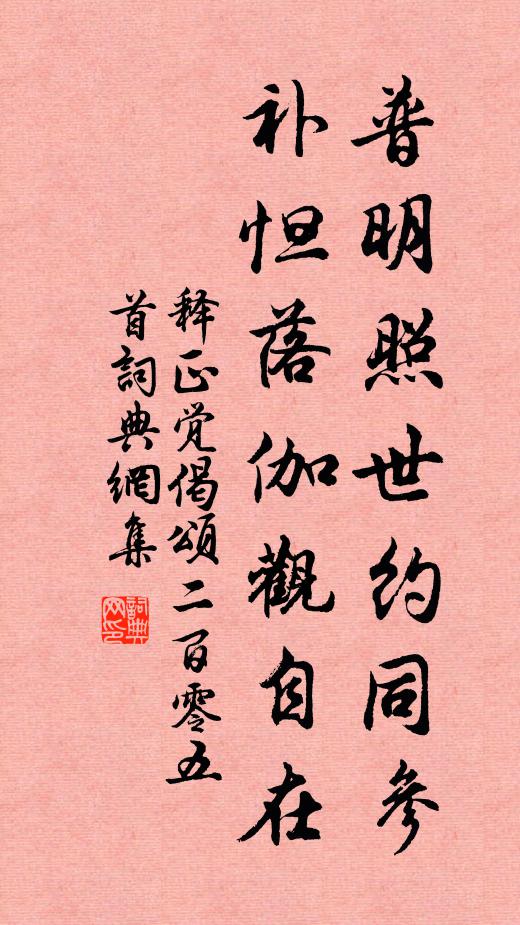 普明照世约同參
补怛落伽觀自在
释正觉偈頌二百零五
首詞典網集
詞典
网印